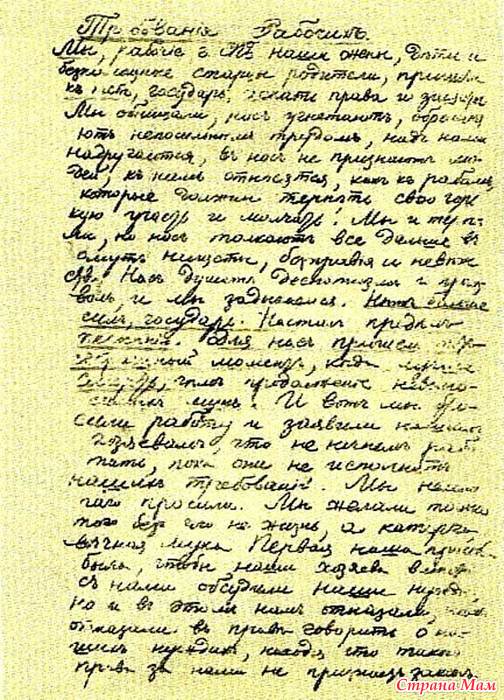 Требованія Рабочихъ.
Мы, рабочіе г. СПБ наши жены, дѣти и
старцы родители, пришли
къ государь, искать права и защиты
Мы обнищали, насъ угнетаютъ, обременя
ютъ непосильнымъ трудомъ, надъ нами
надругаются, въ насъ не признаютъ лю-
дей, къ намъ относятся, какъ къ рабамъ
которые должны терпѣть свою горь
кую участь и молчать! Мы и терпѣ-
ли, но насъ толкаютъ все дальше въ
омутъ нищеты, безправія и невѣже
ства. Насъ душитъ деспотизмъ и произ
волъ и мы задыхаемся. Нѣтъ больше
силъ, государь. Насталъ предѣлъ
терпѣнію. Для насъ пришелъ тотъ
моментъ, когда лучше
смерть, чѣмъ продолженіе невыно-
симыхъ мукъ. И вотъ мы бро-
сили работу и заявили нашимъ
хозяевамъ, что не начнемъ рабо
тать, пока они не исполнятъ
нашихъ требованій. Мы немно
гаго просили. Мы желали только
того безъ чего не жизнь, а каторга
вѣчная мука Первая наша просьба
была, чтобы наши хозяева вмѣстѣ
съ нами обсудили наши нужды
но и въ этомъ намъ отказали, намъ
отказали въ правѣ говорить о на-
шихъ нуждахъ, находя что такого
права за нами не признаетъ законъ
Страна Мам